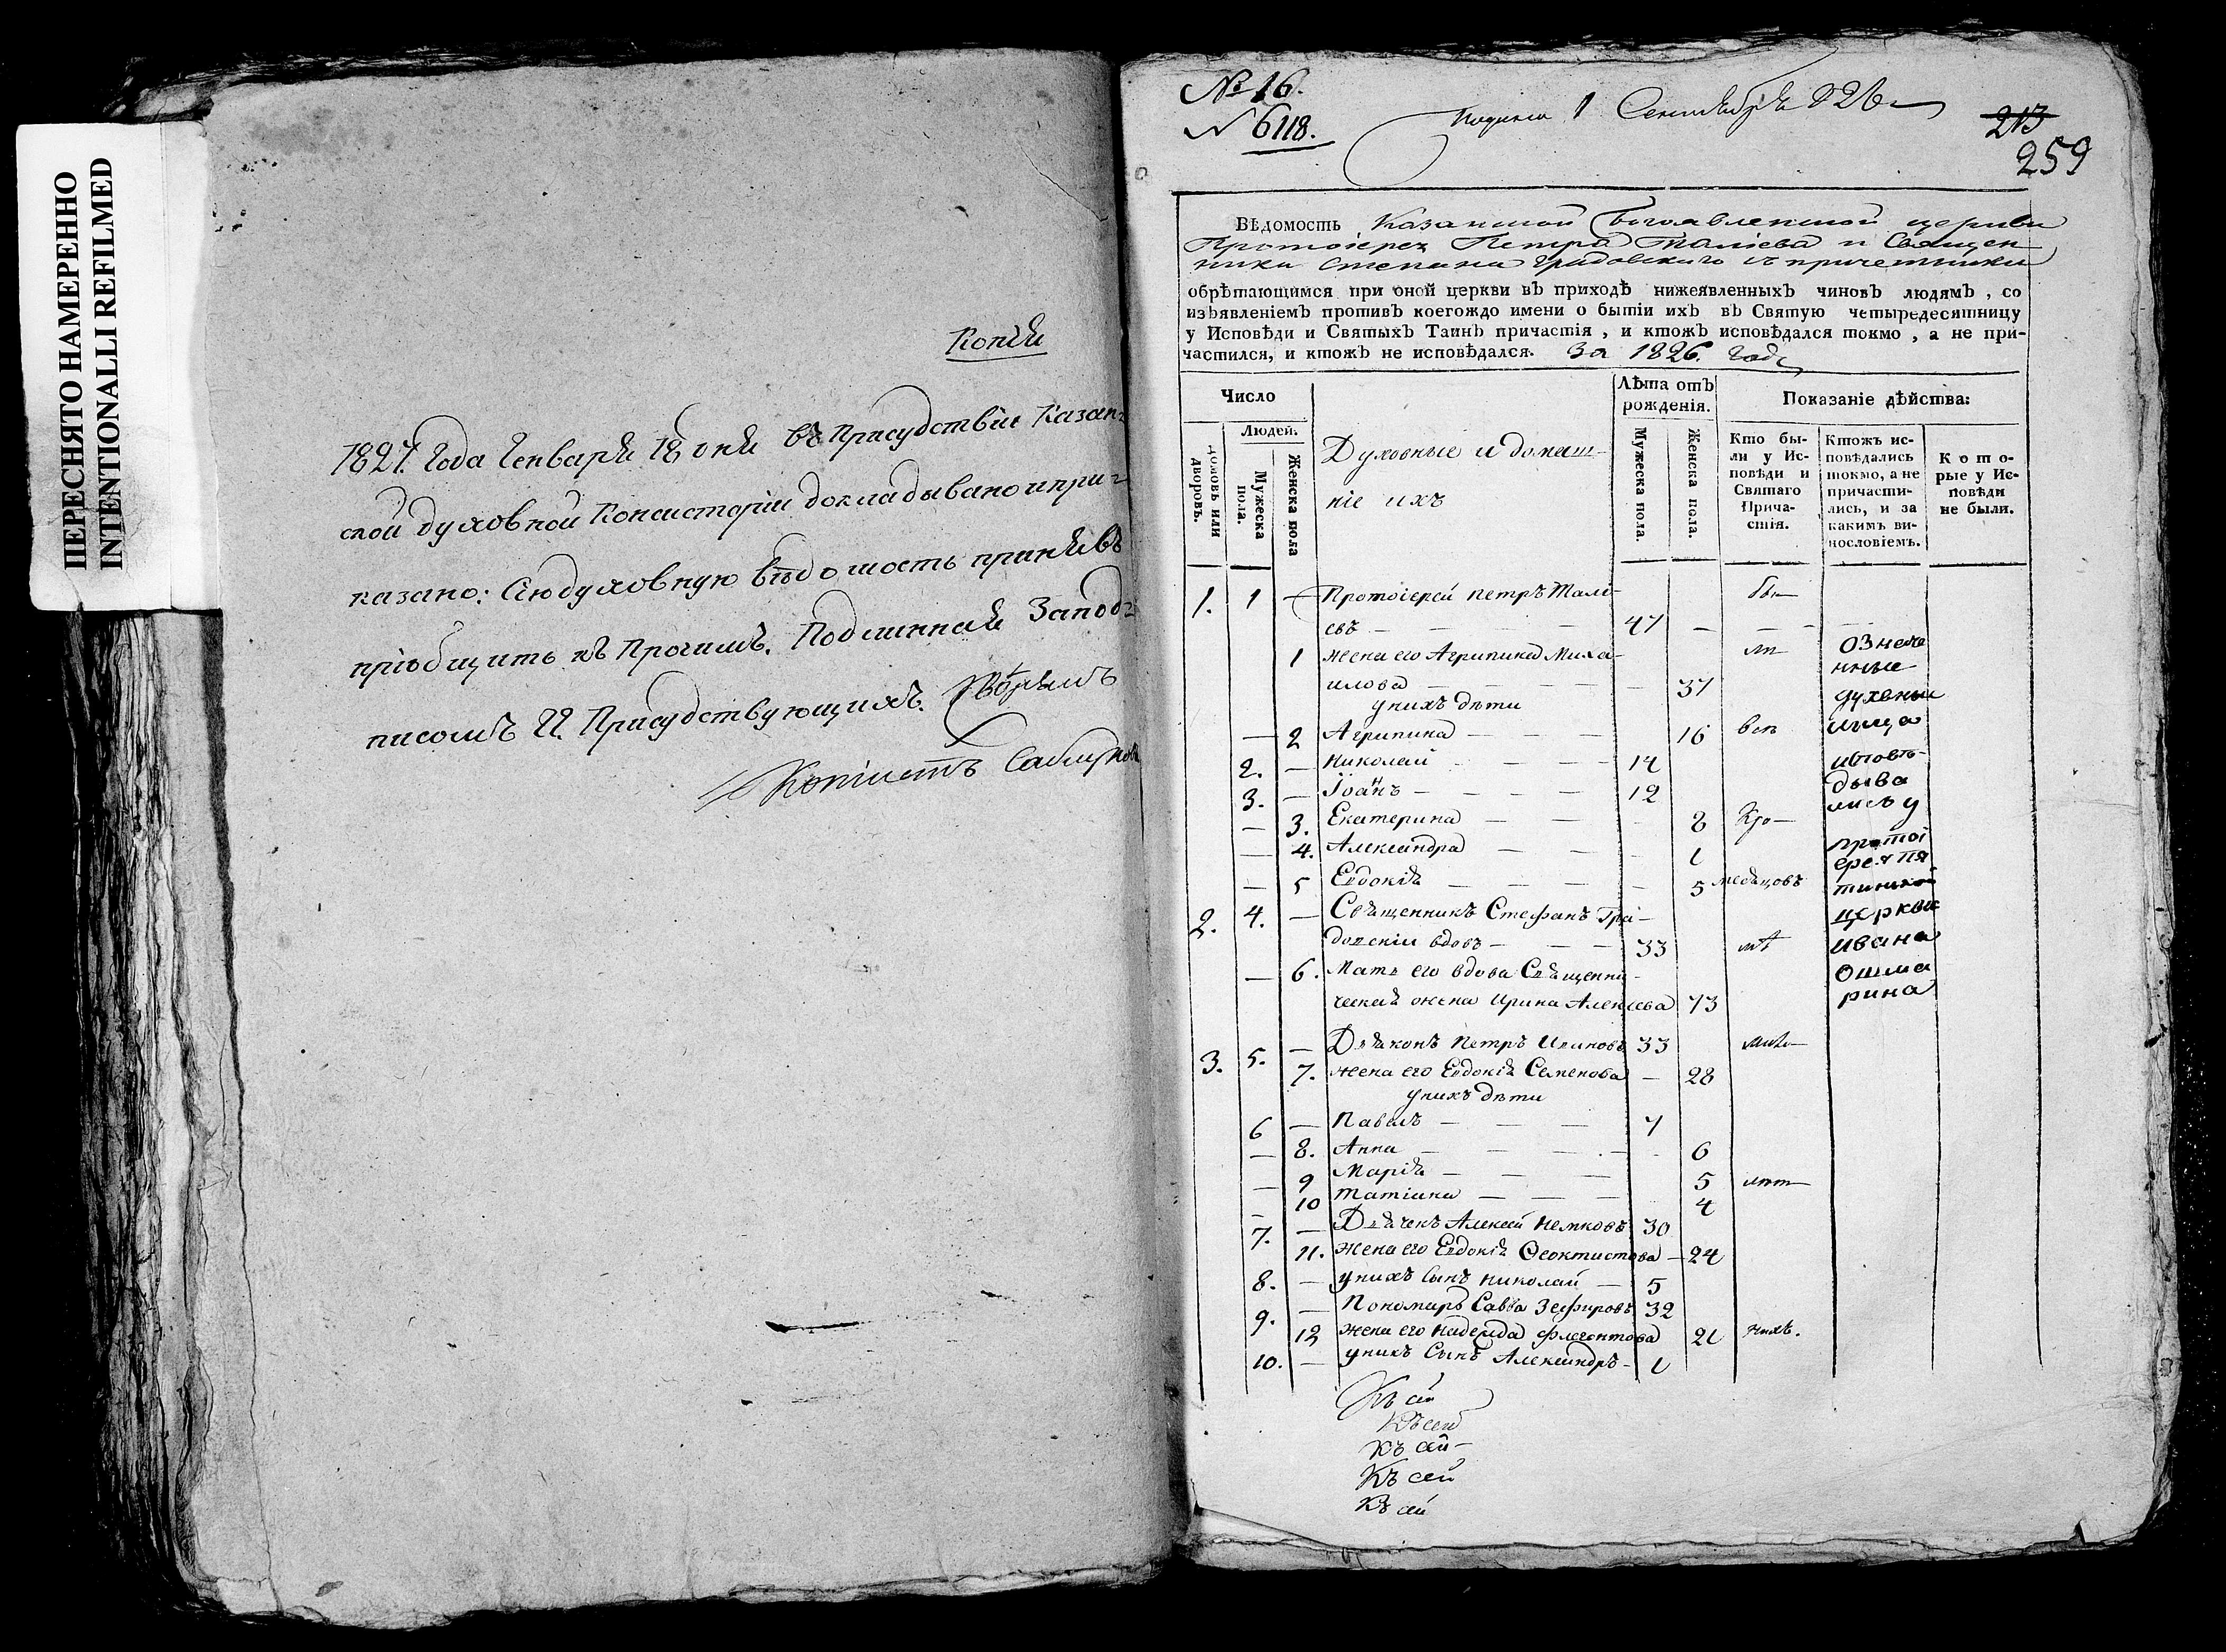 ПЕРЕСНЯТО НАМЕРЕННО
INTENTIONALLI REFILMED
Копія
1827. Года Генваря 18 дня въ Присудствіи Казан-
ской духовной Консисторіи докладывано и при-
казано: Сію духовную вѣдомость принявъ
пріобщить къ Прочимъ. Подлинная За под-
писомъ Присудствующихъ.
Копіистъ
№ 16.
№ 6118.
Подана 1 Сентября 826
213
259
Вѣдомость Казанской Богоявленской церкви
Протоіерея Петра Таліева и Священ-
ника Степана Градовскаго съ причетники
обрѣтающимся при оной церкви въ приходѣ нижеявленныхъ чиновъ людямъ, со
изъявленіемъ противъ коегождо имени о бытіи ихъ въ Святую четыредесятницу
у Исповѣди и Святыхъ Таинъ причастія, и ктожъ исповѣдался токмо, а не при-
частился, и ктожъ не исповѣдался. За 1826. годъ
Число
Людей.
Домовъ или дворовъ.
Мужеска пола.
Женска пола
Духовные и домаш-
ніе ихъ
Лѣта отъ рожденія.
Мужеска пола.
Женска пола.
Показаніе дѣйства:
Кто бы-
ли у Ис-
повѣди и
Святаго
Прича-
стія.
Ктожъ ис-
повѣдались
токмо, а не
причасти-
лись, и за
какимъ ви-
нословіемъ.
Кото-
рые у Ис-
повѣди
не были.
1. 1 — Протоіерей Петръ Талі-
евъ — 47 —
1 жена его Агрипина Миха-
илова — 37
у нихъ дѣти
— 2 Агрипина — 16 всѣ
2. — Николай — 14
3. — Іоаннъ — 12
— 3. Екатерина — 8
— 4. Александра — 1
— 5 Евдокія — 5 месяцовъ
2. 4. — Священникъ Стефанъ Гра-
довскій вдовъ — 33
— 6. Мать его вдова Священни-
ческая жена Ирина Алексѣева 73
3. 5. — Діаконъ Петръ 33
7. жена его Евдокія Семенова — 28
у нихъ дѣти
6 — Павелъ — 7
— 8. Анна — 6
— 9 Марія — 5
— 10 Татіана — 4
7. — Дьячекъ Алексѣй Немковъ 30
11. жена его Евдокія Ѳеоктистова — 24
8. — у нихъ сынъ Николай — 5
9. — Пономарь Савва Зефировъ 32
12 жена его Надежда Флегонтова 21
10. — у нихъ Сынъ Александръ — 1
Означе
нные
духовныи
лица
исповѣ-
дыва
лись у
протоі
ерея Пя
тницкой
церкви
Ивана
Ошма
рина
Къ сей
Къ сей
Къ сей
Къ сей
Къ сей